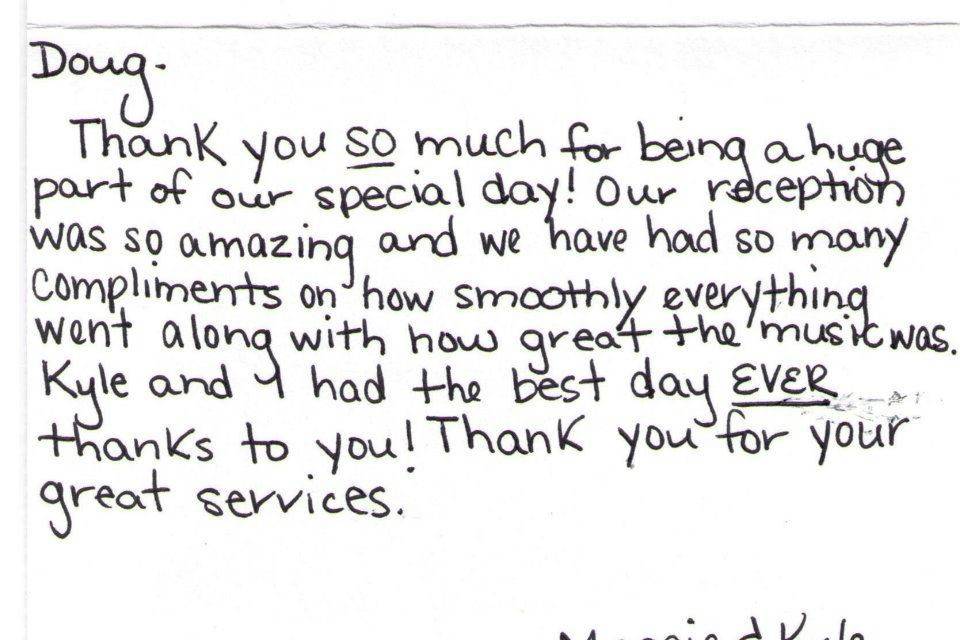 Doug-
Thank you so much for being a huge
part of our special day! Our reception
was so amazing and we have had so many
compliments on how smoothly everything
went along with how great the music was.
Kyle and I had the best day EVER
thanks to you! Thank you for your
great services.